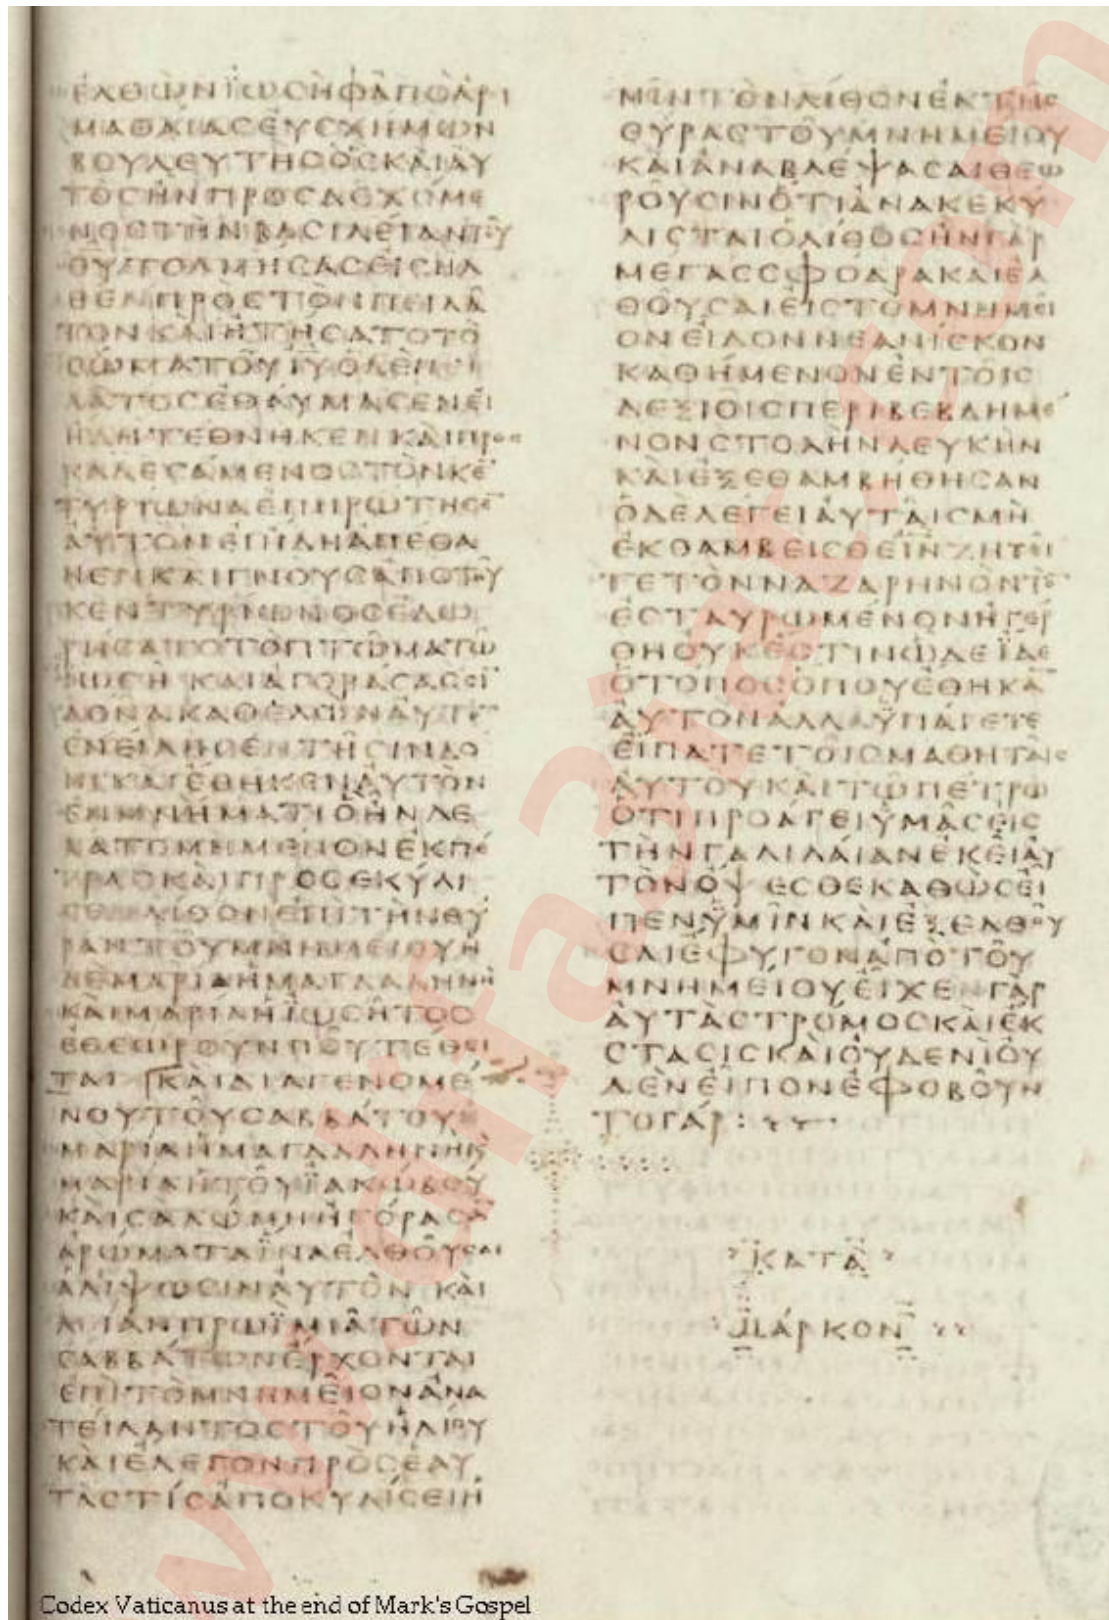 ΕΛΘΩΝΪΩϹΗΦΑΠΟΑΡΙ
ΜΑΘΑΙΑϹΕΥϹΧΗΜΩΝ
ΒΟΥΛΕΥΤΗϹΟϹΚΑΙΑΥ
ΤΟϹΗΝΠΡΟϹΔΕΧΟΜΕ
ΝΟϹΤΗΝΒΑϹΙΛΕΙΑΝΤΟΥ
ΘΥΤΟΛΜΗϹΑϹΕΙϹΗΛ
ΘΕΝΠΡΟϹΤΟΝΠΕΙΛΑ
ΤΟΝΚΑΙΗΤΗϹΑΤΟΤΟ
ϹΩΜΑΤΟΥΙΥΟΔΕΠΕΙ
ΛΑΤΟϹΕΘΑΥΜΑϹΕΝΕΙ
ΗΔΗΤΕΘΝΗΚΕΝΚΑΙΠΡΟϹ
ΚΑΛΕϹΑΜΕΝΟϹΤΟΝΚΕ̅
ΤΥΡΙΩΝΑΕΠΗΡΩΤΗϹΕ̅
ΑΥΤΟΝΕΙΗΔΗΑΠΕΘΑ
ΝΕΝΚΑΙΓΝΟΥϹΑΠΟΤΟΥ
ΚΕΝΤΥΡΙΩΝΟϹΕΔΩ
ΡΗϹΑΤΟΤΟΠΤΩΜΑΤΩ
ΙΩϹΗΚΑΙΑΓΟΡΑϹΑϹϹΙ̅
ΔΟΝΑΚΑΘΕΛΩΝΑΥΤΟ̅
ΕΝΕΙΛΗϹΕΝΤΗϹΙΝΔΟ
ΝΙΚΑΙΕΘΗΚΕΝΑΥΤΟΝ
ΕΝΜΝΗΜΑΤΙΟΗΝΛΕ
ΛΑΤΟΜΗΜΕΝΟΝΕΚΠΕ
ΤΡΑϹΚΑΙΠΡΟϹΕΚΥΛΙ
ϹΕΝΛΙΘΟΝΕΠΙΤΗΝΘΥ
ΡΑΝΤΟΥΜΝΗΜΕΙΟΥΗ
ΔΕΜΑΡΙΑΗΜΑΓΔΑΛΗΝΗ
ΚΑΙΜΑΡΙΑΗΙΩϹΗΤΟϹ
ΕΘΕΩΡΟΥΝΠΟΥΤΕΘΕΙ
ΤΑΙ ΚΑΙΔΙΑΓΕΝΟΜΕ
ΝΟΥΤΟΥϹΑΒΒΑΤΟΥΗ
ΜΑΡΙΑΗΜΑΓΔΑΛΗΝΗΚ
ΜΑΡΙΑΗΤΟΥΪΑΚΩΒΟΥ
ΚΑΙϹΑΛΩΜΗΗΓΟΡΑϹΑ̅
ΑΡΩΜΑΤΑΪΝΑΕΛΘΟΥϹΑΙ
ΑΛΙΨΩϹΙΝΑΥΤΟΝ ΚΑΙ
ΛΙΑΝΠΡΩΪΜΙΑΤΩΝ
ϹΑΒΒΑΤΩΝΕΡΧΟΝΤΑΙ
ΕΠΙΤΟΜΝΗΜΕΙΟΝΑΝΑ
ΤΕΙΛΑΝΤΟϹΤΟΥΗΛΙΟΥ
ΚΑΙΕΛΕΓΟΝΠΡΟϹΕΑΥ
ΤΑϹΤΙϹΑΠΟΚΥΛΙϹΕΙΗ
ΜΙΝΤΟΝΛΙΘΟΝΕΚΤΗϹ
ΘΥΡΑϹΤΟΥΜΝΗΜΕΙΟΥ
ΚΑΙΑΝΑΒΛΕΨΑϹΑΙΘΕΩ
ΡΟΥϹΙΝΟΤΙΑΝΑΚΕΚΥ
ΛΙϹΤΑΙΟΛΙΘΟϹΗΝΓΑΡ
ΜΕΓΑϹϹΦΟΔΡΑΚΑΙΕΛ
ΘΟΥϹΑΙΕΙϹΤΟΜΝΗΜΕΙ
ΟΝΕΙΔΟΝΝΕΑΝΙϹΚΟΝ
ΚΑΘΗΜΕΝΟΝΕΝΤΟΙϹ
ΔΕΞΙΟΙϹΠΕΡΙΒΕΒΛΗΜΕ
ΝΟΝϹΤΟΛΗΝΛΕΥΚΗΝ
ΚΑΙΕΞΕΘΑΜΒΗΘΗϹΑΝ
ΟΔΕΛΕΓΕΙΑΥΤΑΙϹΜΗ
ΕΚΘΑΜΒΕΙϹΘΕΙΝΖΗΤΕΙ
ΤΕΤΟΝΝΑΖΑΡΗΝΟΝΤΟ̅
ΕϹΤΑΥΡΩΜΕΝΟΝΗΓΕΡ
ΘΗΟΥΚΕϹΤΙΝΩΔΕΪΔΕ
ΟΤΟΠΟϹΟΠΟΥΕΘΗΚΑ̅
ΑΥΤΟΝΑΛΛΑΫΠΑΓΕΤΕ
ΕΙΠΑΤΕΤΟΙϹΜΑΘΗΤΑΙϹ
ΑΥΤΟΥΚΑΙΤΩΠΕΤΡΩ
ΟΤΙΠΡΟΑΓΕΙΥΜΑϹΕΙϹ
ΤΗΝΓΑΛΙΛΑΙΑΝΕΚΕΙΑΥ
ΤΟΝΟΨΕϹΘΕΚΑΘΩϹΕΙ
ΠΕΝΫΜΙΝΚΑΙΕΞΕΛΘΟΥ
ϹΑΙΕΦΥΓΟΝΑΠΟΤΟΥ
ΜΝΗΜΕΙΟΥΕΙΧΕΝΓΑΡ
ΑΥΤΑϹΤΡΟΜΟϹΚΑΙΕΚ
ϹΤΑϹΙϹΚΑΙΟΥΔΕΝΙΟΥ
ΔΕΝΕΙΠΟΝΕΦΟΒΟΥΝ
ΤΟΓΑΡ:
ΚΑΤΑ
ΜΑΡΚΟΝ
Codex Vaticanus at the end of Mark's Gospel